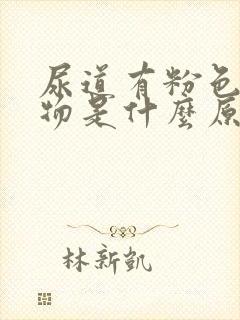 尿道有粉色
物是什麼原
林新凱